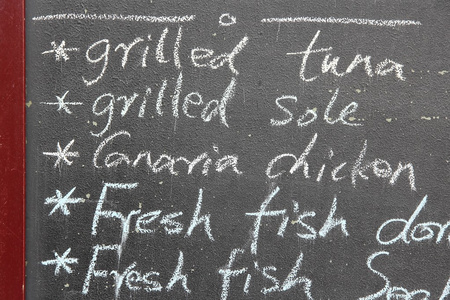 * grilled tuna
* grilled sole
* Canaria chicken
* Fresh fish
* Fresh fish